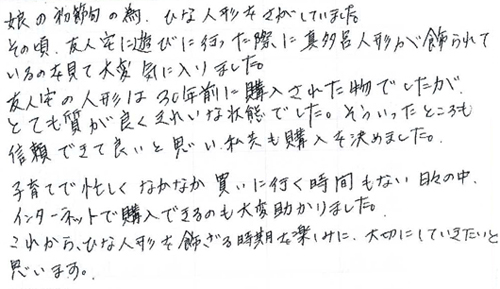 娘の初節句の為、ひな人形をさがしていました。
その頃、友人宅に遊びに行った際に真多呂人形が飾られて
いるのを見て大変気に入りました。
友人宅の人形は30年前に購入された物でしたが、
とても質が良くきれいな状態でした。そういったところも
信頼できて良いと思い、私共も購入を決めました。
子育てで忙しくなかなか買いに行く時間もない日々の中、
インターネットで購入できるのも大変助かりました。
これから、ひな人形を飾ざる時期を楽しみに、大切にしていきたいと
思います。